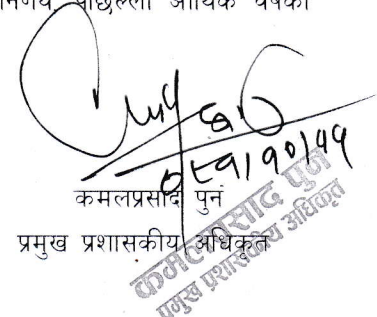 पछिल्लो आर्थिक वर्षको
कमलप्रसाद पुन
प्रमुख प्रशासकीय अधिकृत
कमलप्रसाद पुन
प्रमुख प्रशासकीय अधिकृत